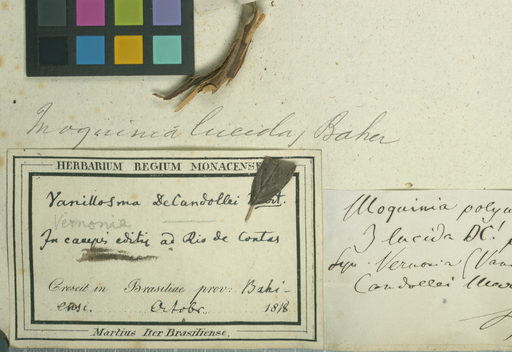 Moquinia lucida, Baker
HERBARIUM REGIUM MONACENSE
Vanillosma DeCandollei Mart.
Vernonia
In campis editis ad Rio de Contas
Crescit in Brasiliae prov: Bahi-
ensi. Octobr. 1818
Martius Iter Brasiliense.
Moquinia
3 lucida DC!
Syn. Vernonia (Van
Candollei Mar